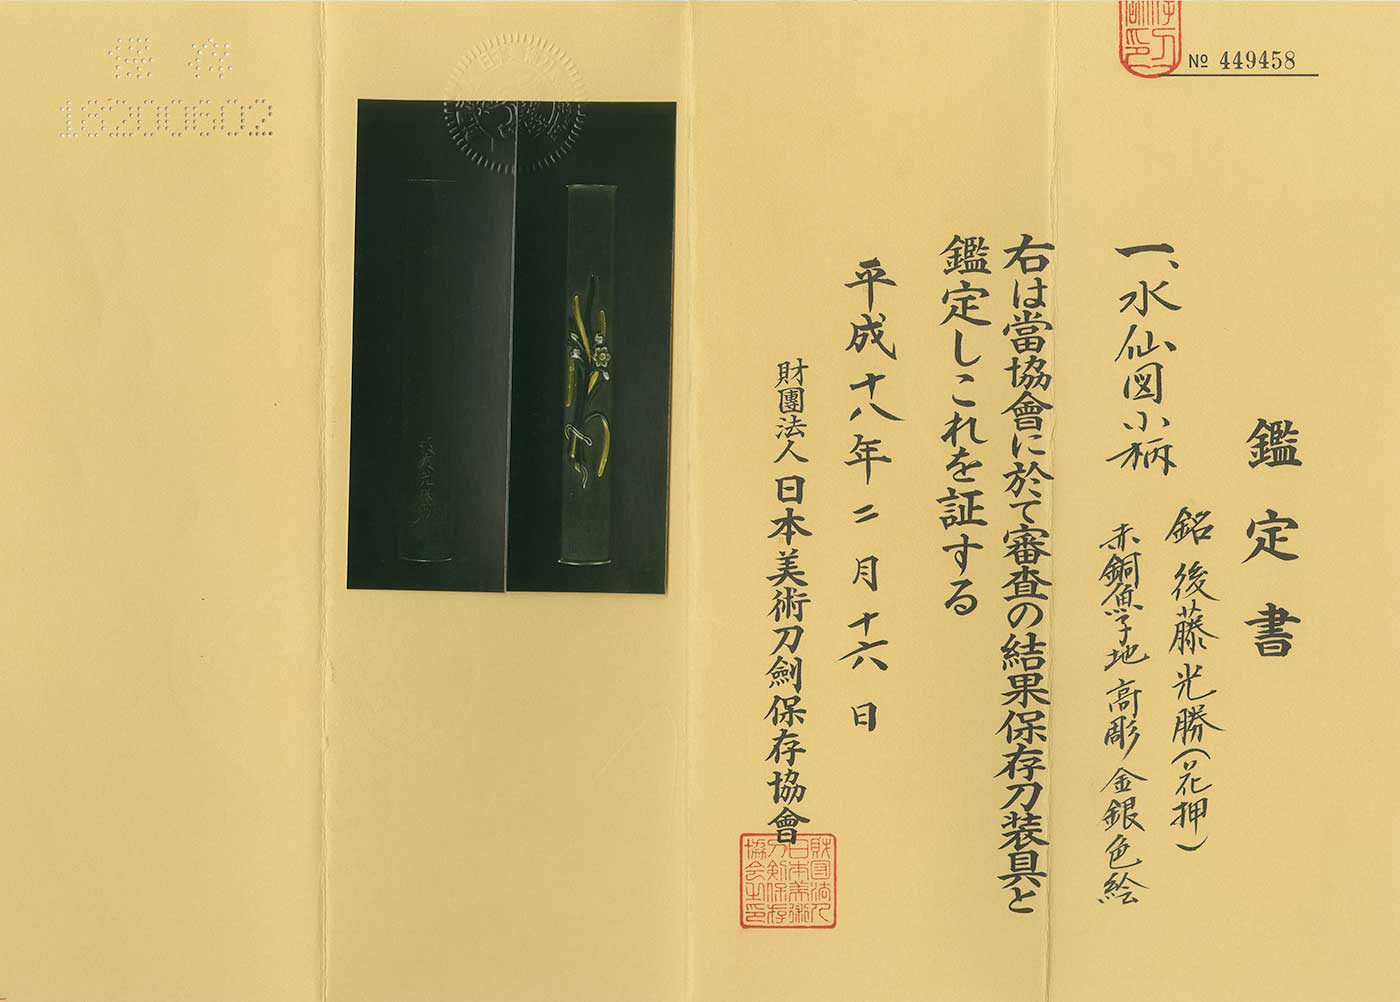 № 449458
鑑定書
一、水仙図小柄
銘 後藤光勝(花押)
赤銅魚子地高彫金銀色絵
右は當協會に於て審査の結果保存刀装具と
鑑定しこれを証する
平成十八年二月十六日
財團法人日本美術刀劍保存協會
財団法人日本美術刀剣保存協会之印
保存
18200602